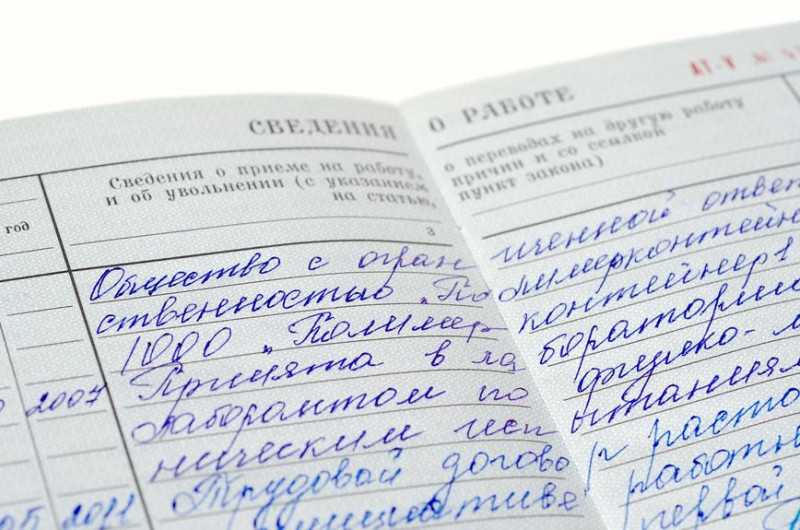 СВЕДЕНИЯ О РАБОТЕ
АТ-V №
год
Сведения о приеме на работу, о переводах на другую работу
и об увольнении (с указанием причин и со ссылкой
на статью, пункт закона)
3
Общество с огран иченной ответ
ственностью „По лимерконтейн
/ООО „Полимер контейнер"
Принята в ла бораторию
2007 лаборантом по физико-м
ническим исп ытаниям
Трудовой догово р расто
05 2011 инициативе работн
первой